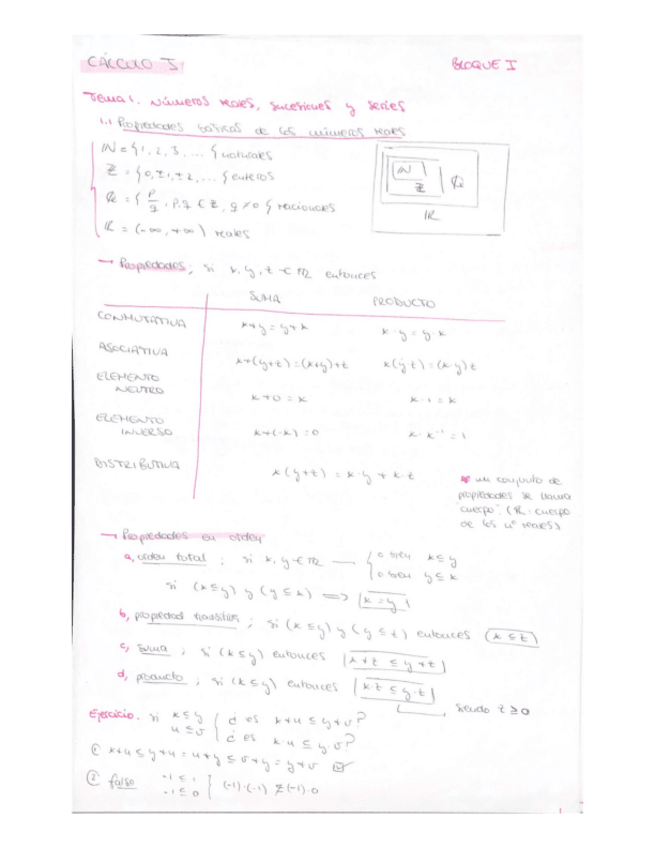 CÁLCULO I
BLOQUE I
Tema 1. Números reales, sucesiones y series
1.1 Propiedades básicas de los números reales
ℕ = {1, 2, 3, ... { naturales
ℤ = {0, ±1, ±2, ... { enteros
ℚ = { p/q , p, q ∈ ℤ, q ≠ 0 { racionales
ℝ = (-∞, +∞) reales
ℕ
ℤ
ℚ
ℝ
→ Propiedades; si x, y, z ∈ ℝ entonces
SUMA PRODUCTO
CONMUTATIVA x+y = y+x x·y = y·x
ASOCIATIVA x+(y+z) = (x+y)+z x(y·z) = (x·y)z
ELEMENTO NEUTRO x+0 = x x·1 = x
ELEMENTO INVERSO x+(-x) = 0 x·x⁻¹ = 1
DISTRIBUTIVA x(y+z) = x·y + x·z
* un conjunto de
propiedades se llama
"cuerpo". (ℝ: cuerpo
de los nº reales)
→ Propiedades en orden
a, orden total ; si x, y ∈ ℝ — { o bien x ≤ y
o bien y ≤ x
si (x ≤ y) y (y ≤ x) ⇒ x = y
b, propiedad transitiva ; si (x ≤ y) y (y ≤ z) entonces (x ≤ z)
c, suma ; si (x ≤ y) entonces x+z ≤ y+z
d, producto ; si (x ≤ y) entonces x·z ≤ y·z
siendo z ≥ 0
Ejercicio. si x ≤ y { ¿es x+u ≤ y+v?
u ≤ v { ¿es x·u ≤ y·v?
① x+u ≤ y+u = u+y ≤ v+y = y+v ☑
② falso -1 ≤ 1
-1 ≤ 0 } (-1)·(-1) ≰ (-1)·0